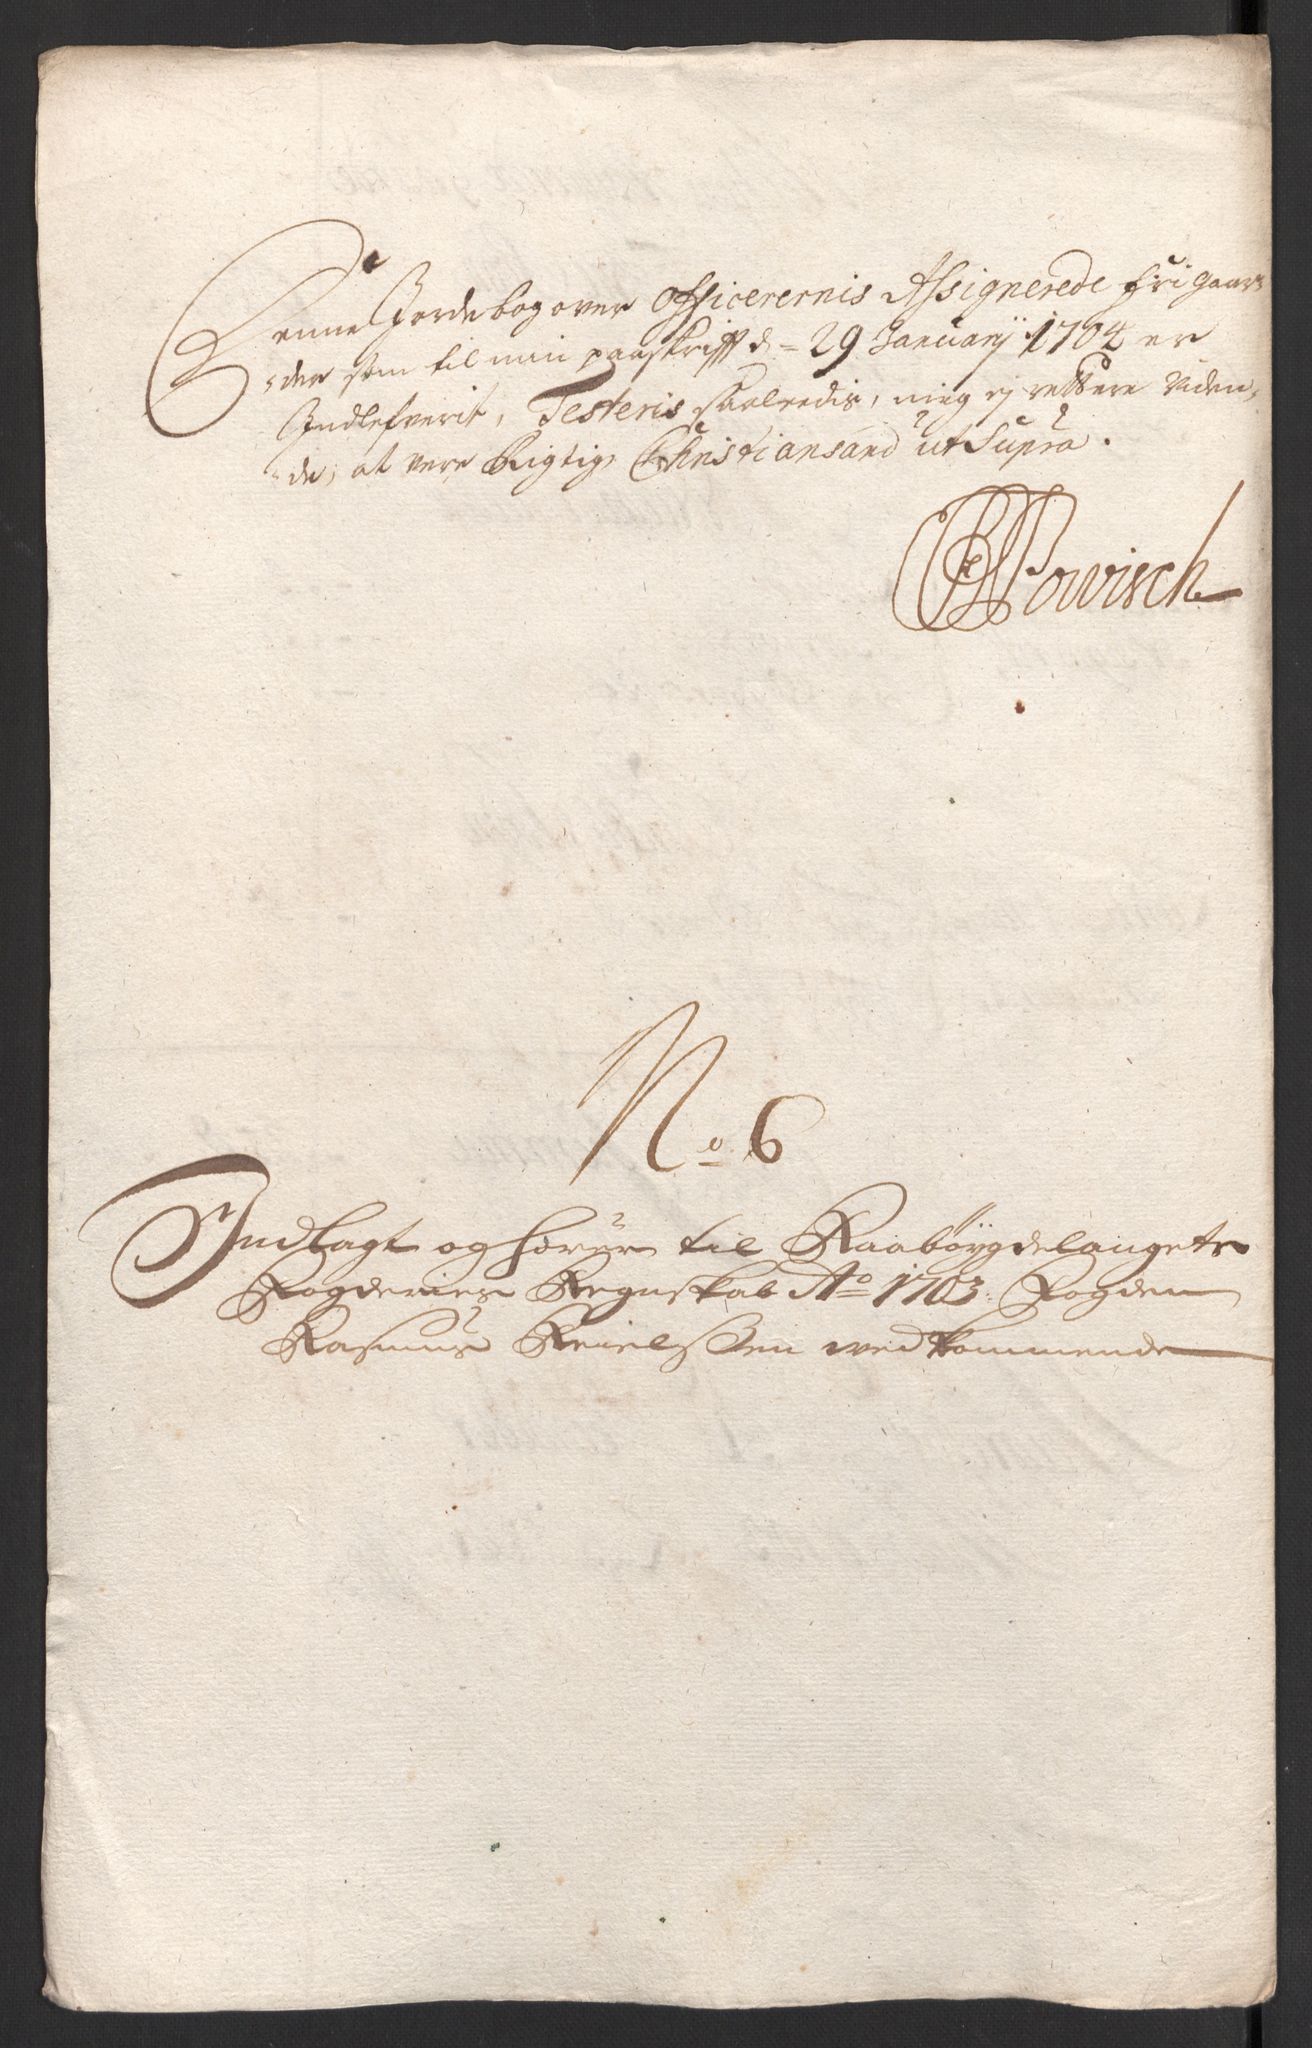 Denne Jordebog over Officerernis Assignerede frigaar-
-der som til min paaskrifft d = 29 Januarij 1704 er
Indlefverit, Testeris saaledis, mig ej rettere viden-
-de, at vere Rigtig Christiansand ut Supra.
Powisch
No. 6
Indlagt og hører til Raabøygdelaugets
Fogderies Regnskab Ao 1703 Fogden
Rasmus Keielssen vedkommende